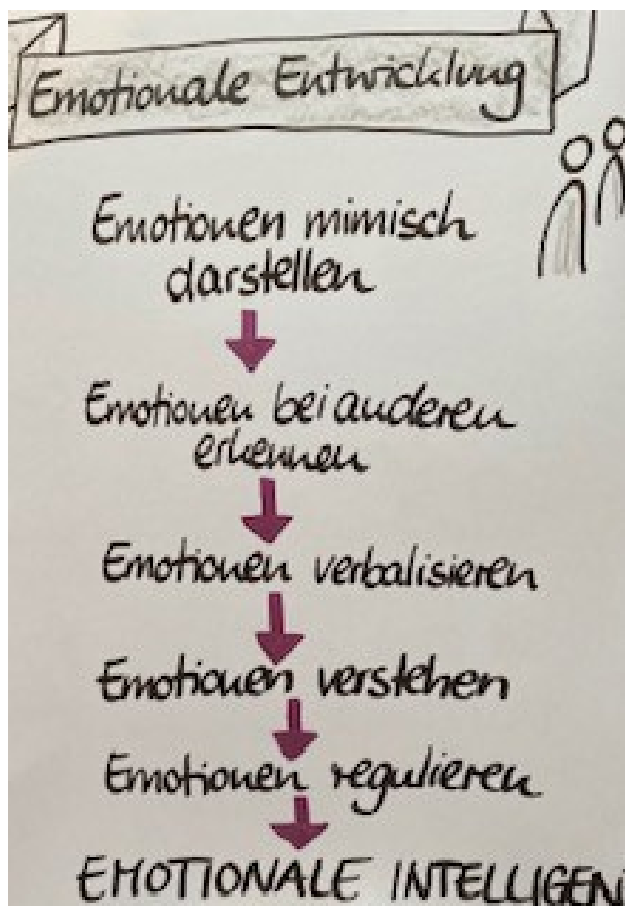 Emotionale Entwicklung
Emotionen mimisch
darstellen
Emotionen bei anderen
erkennen
Emotionen verbalisieren
Emotionen verstehen
Emotionen regulieren
EMOTIONALE INTELLIGEN